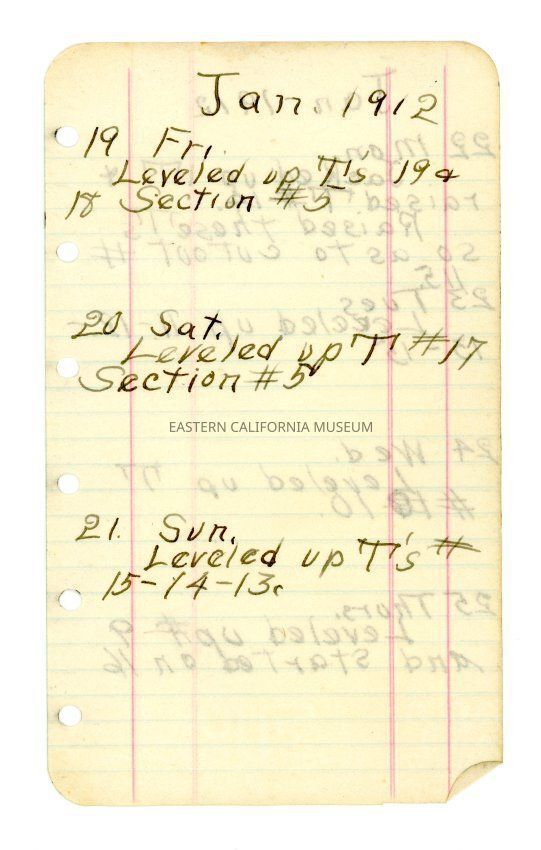 Jan 1912
19 Fri,
Leveled up T's 19 &
18 Section #5
20 Sat.
Leveled up T #17
Section #5
EASTERN CALIFORNIA MUSEUM
21. Sun.
Leveled up T's #
15-14-13.